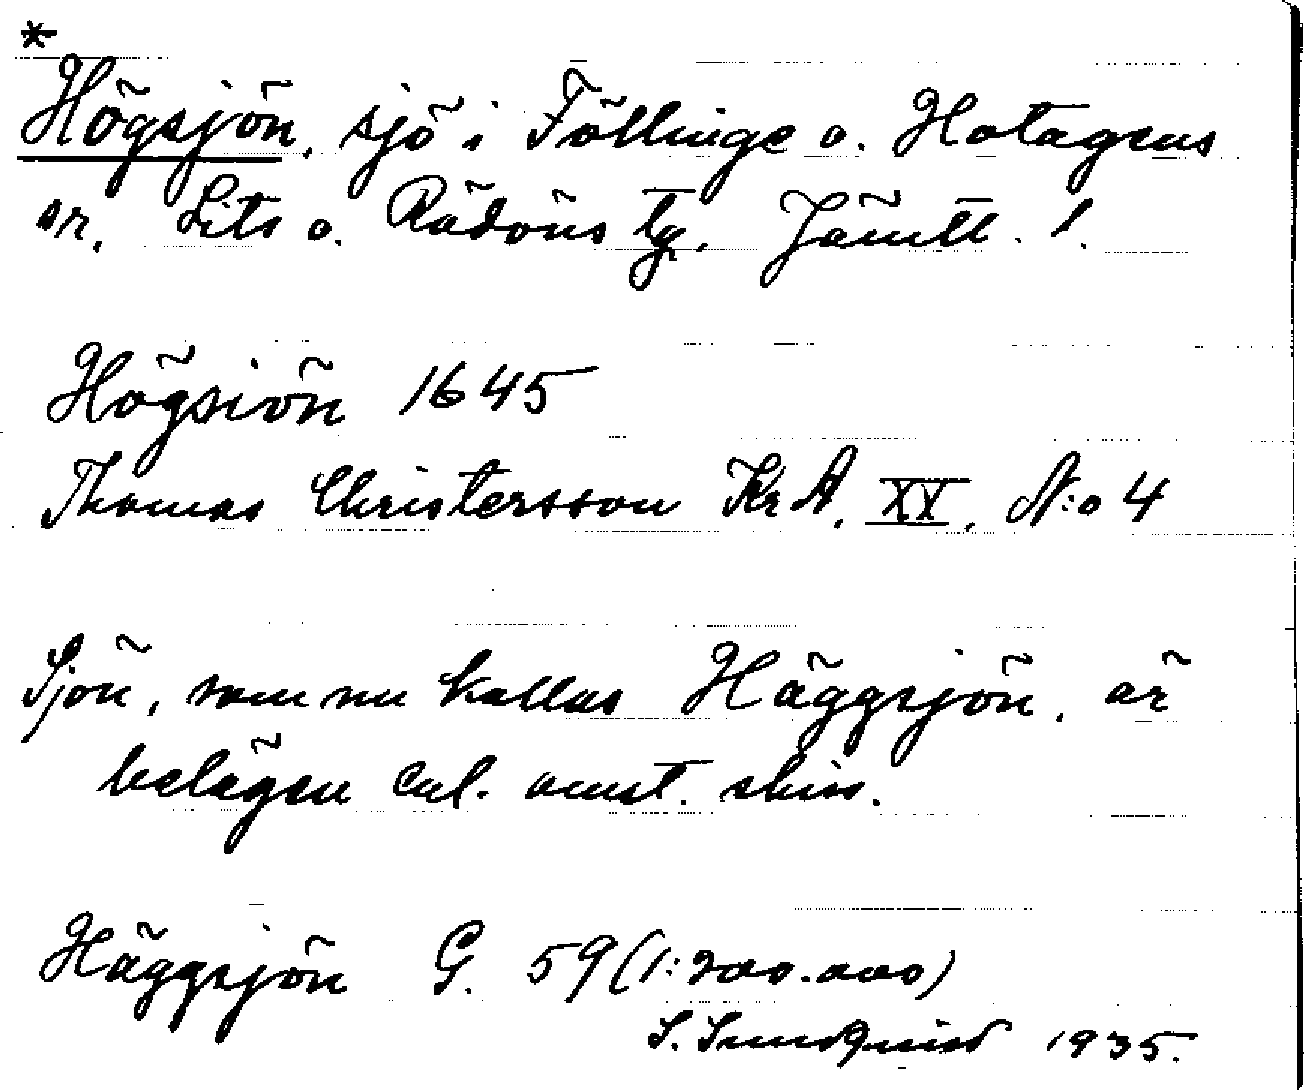 *
Högsjön, sjö i Föllinge o. Hotagens
sr, Lits o. Rödöns tg, Jämtl. l.
Högsiön 1645
Thomas Christersson Kr A, XV, N:o 4
Sjön, som nu kallas Häggsjön, är
belägen enl. annst. skiss.
Häggsjön G. 59 (1:200.000)
S. Sundqvist 1935.